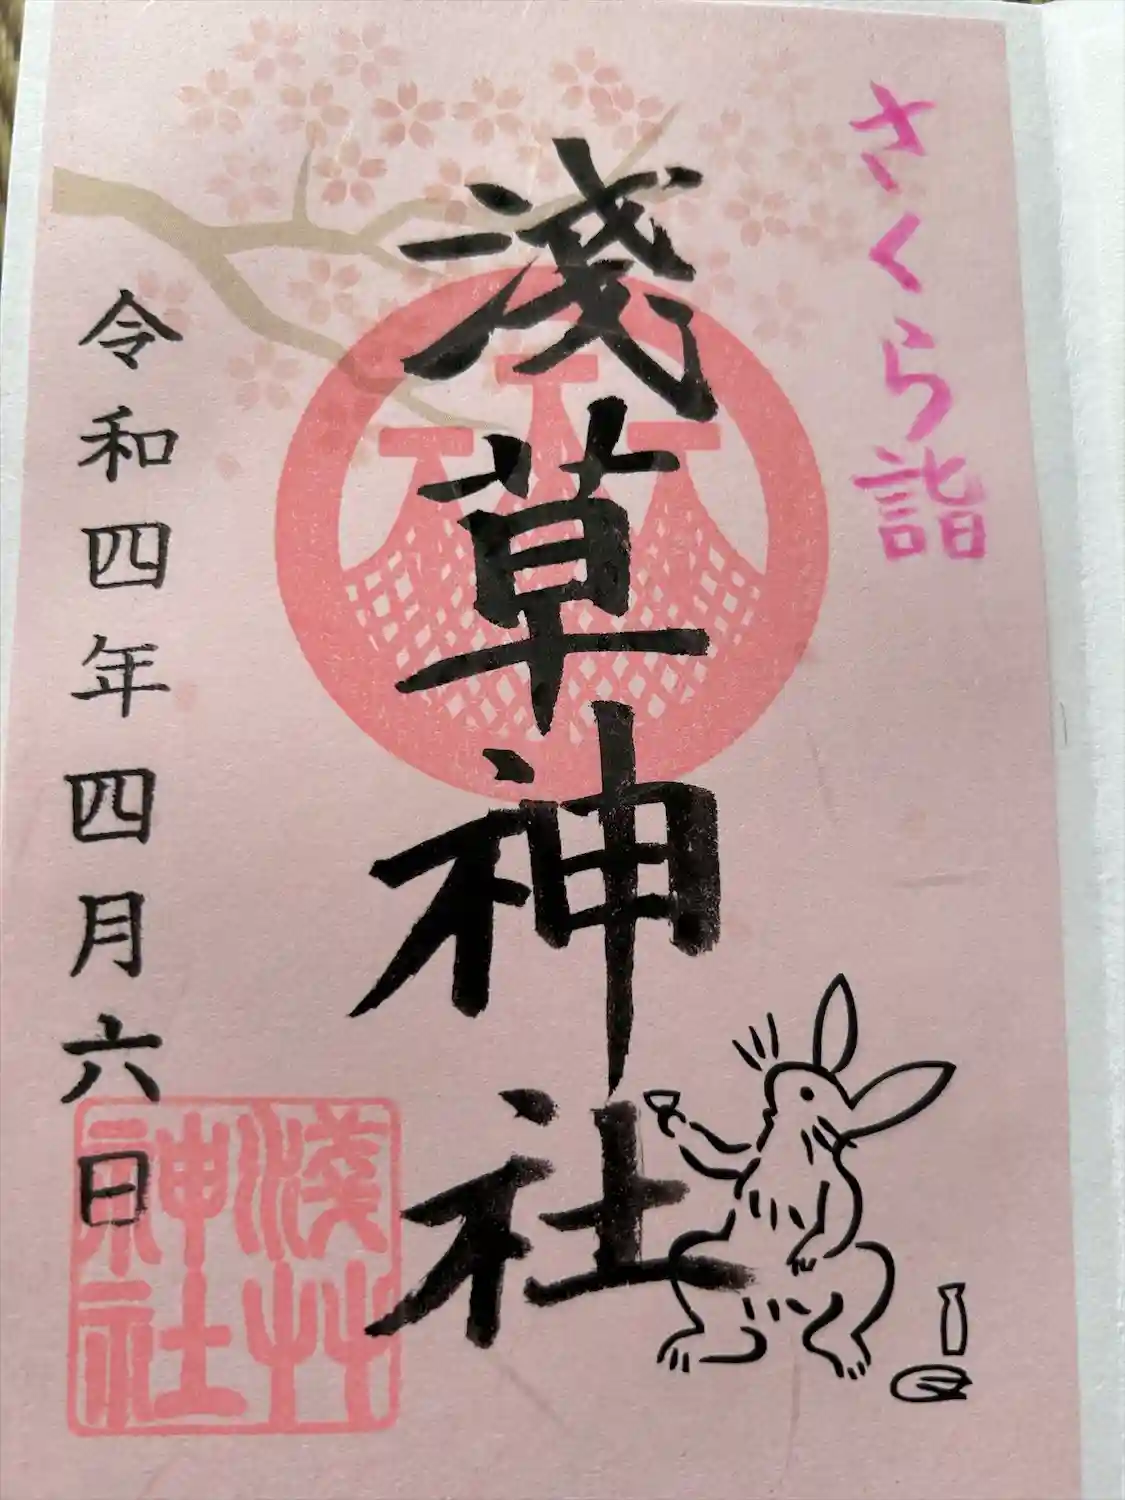 さくら詣
淺草神社
令和四年四月六日
淺艸
神社